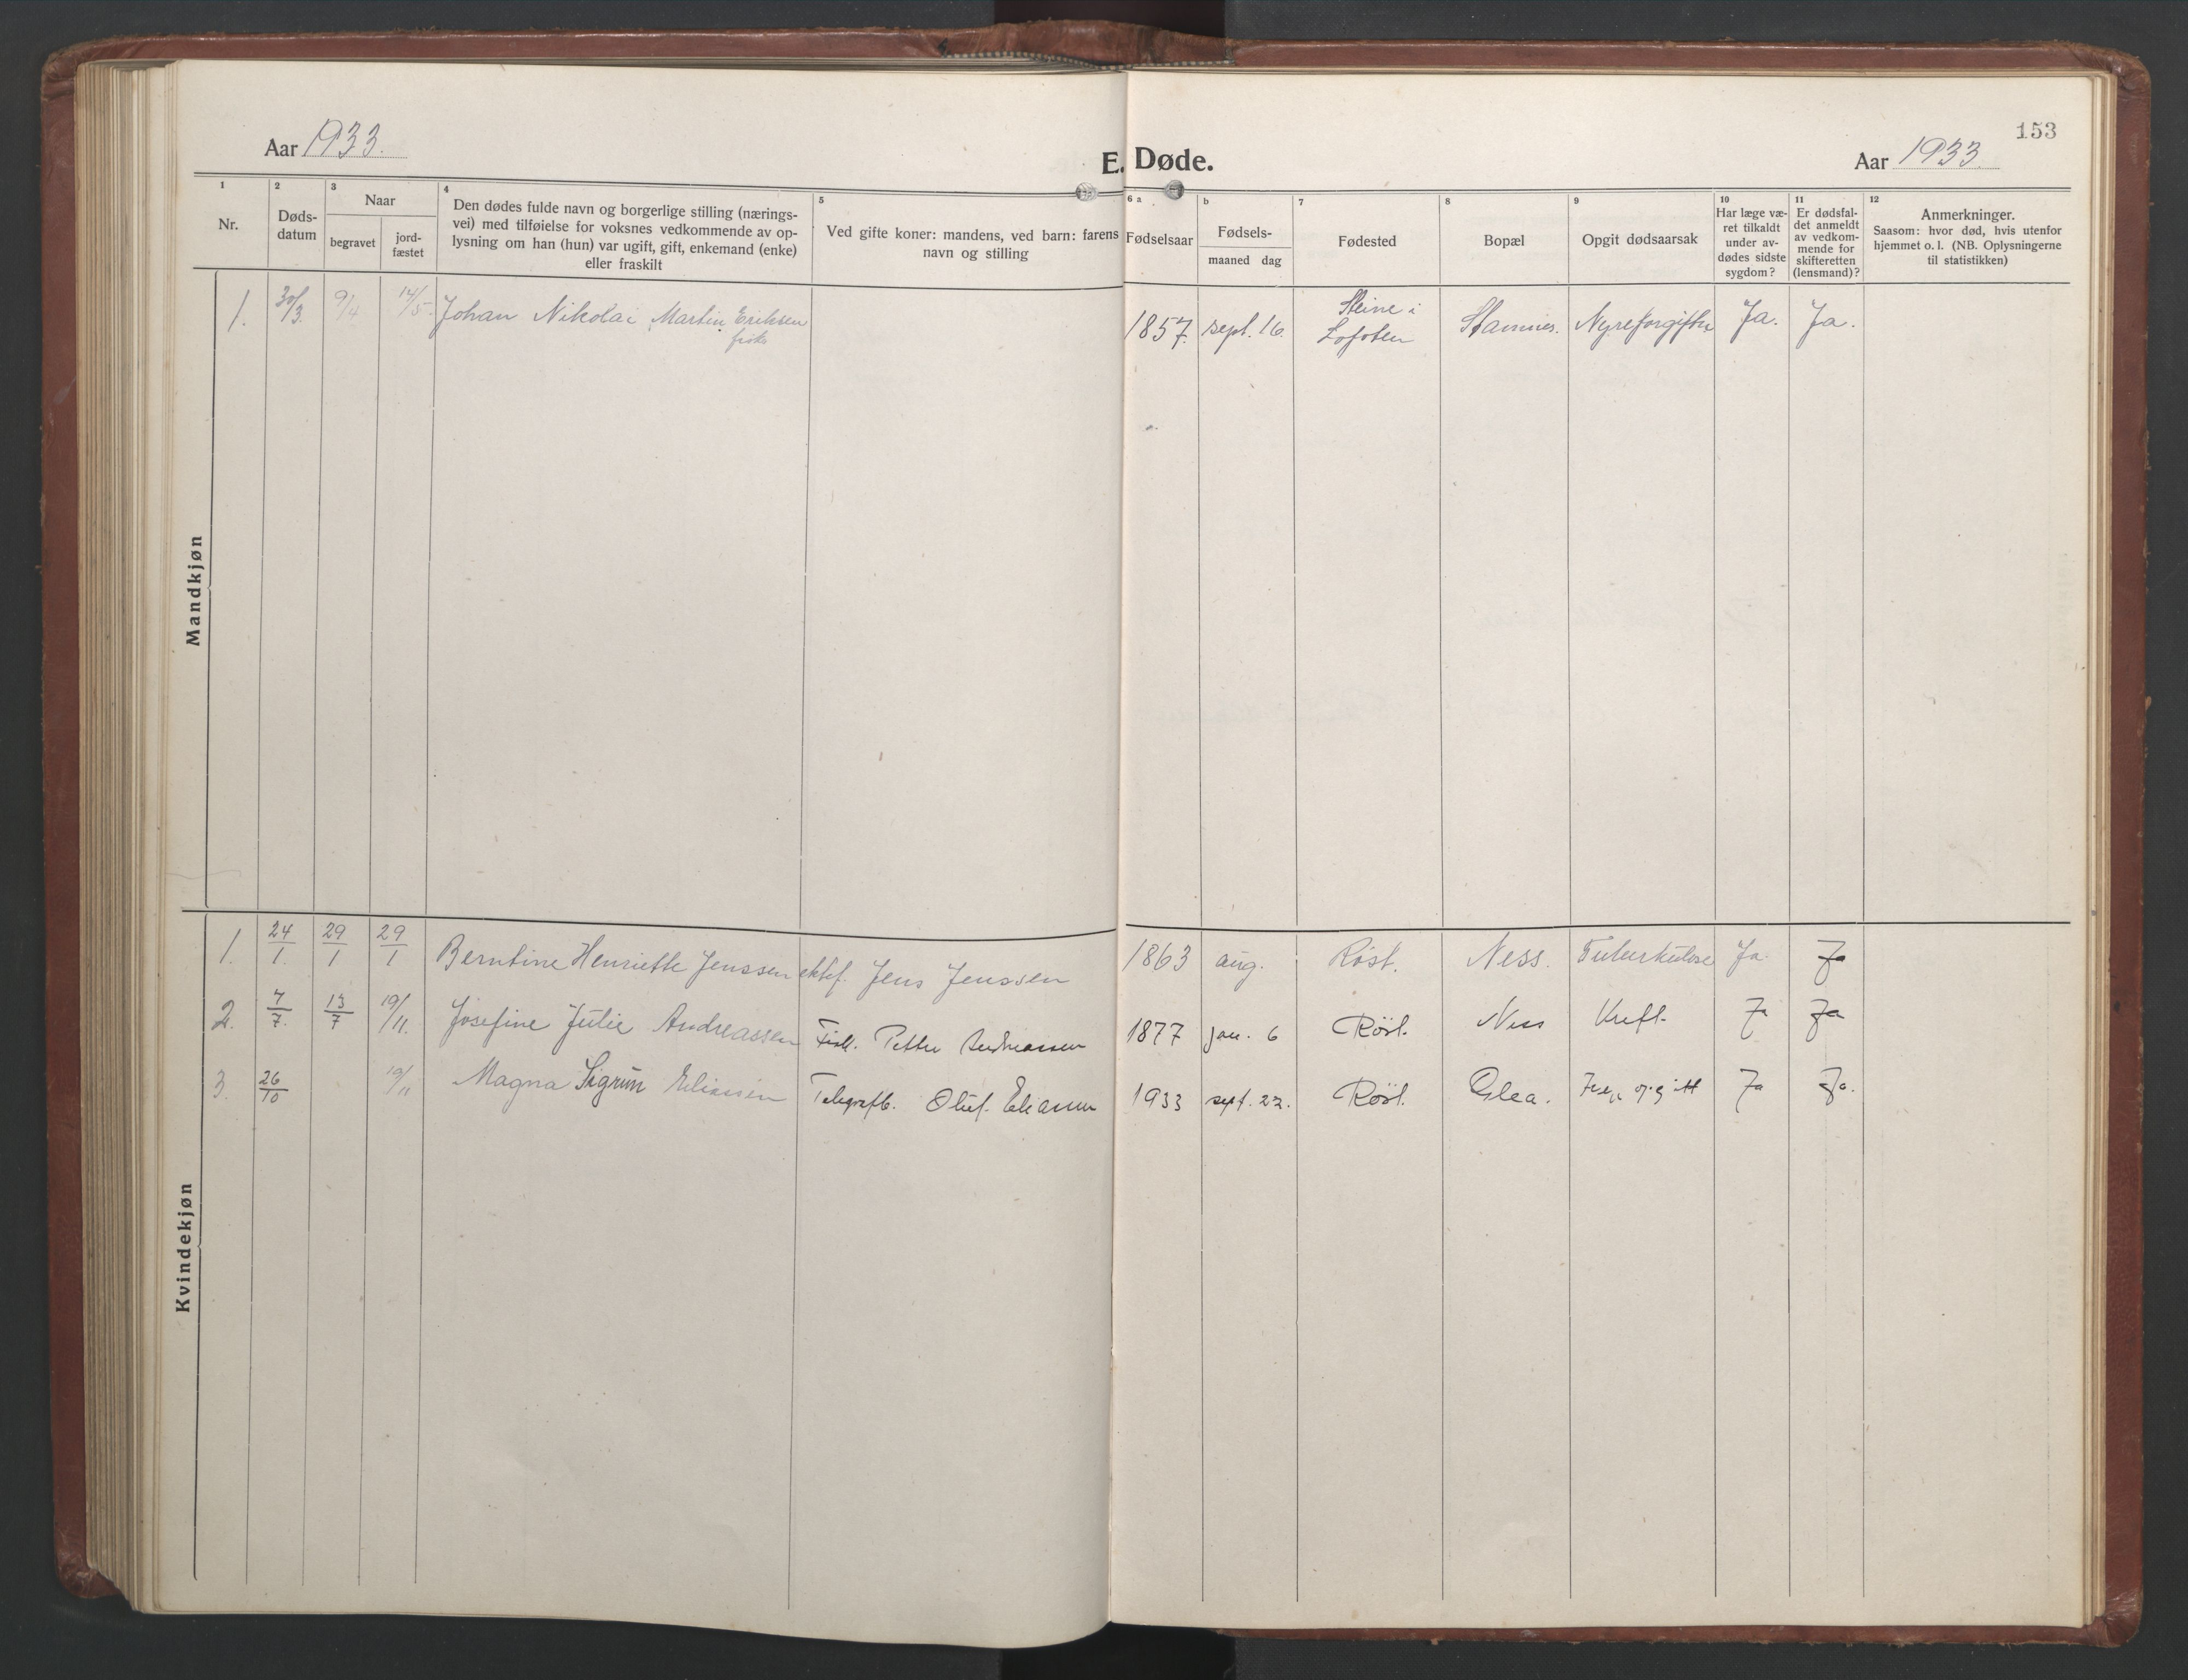 Aar 1933.
E. Døde.
Aar 1933.
153
1
Nr.
2
Døds-
datum
3
Naar
begravet
jord-
fæstet
4
Den dødes fulde navn og borgerlige stilling (nærings-
vei) med tilføielse for voksnes vedkommende av op-
lysning om han (hun) var ugift, gift, enkemand (enke)
eller fraskilt
5
Ved gifte koner: mandens, ved barn: farens
navn og stilling
6 a
Fødselsaar
b
Fødsels-
maaned dag
7
Fødested
8
Bopæl
9
Opgit dødsaarsak
10
Har læge væ-
ret tilkaldt
under av-
dødes sidste
sygdom?
11
Er dødsfal-
det anmeldt
av vedkom-
mende for
skifteretten
(lensmand)?
12
Anmerkninger.
Saasom: hvor død, hvis utenfor
hjemmet o. l. (NB. Oplysningerne
til statistikken)
Mandkjøn
1. 30/3. 9/4 14/5. Johan Nikolai Martin Eriksen 1857. sept. 16. Steine i Lofoten Stamnes. Nyreforgiftn Ja. Ja.
Kvindekjøn
1. 24/1. 29/1 29/1 Berntine Henriette Jenssen Jens Jenssen 1863 aug. Röst. Ness. Tuberkulose Ja. Ja
2. 7/7. 13/7 19/11. Josefine Julie Andreassen Fisk. Petter Andreassen 1877 jan. 6 Röst. Ness Kreft. Ja Ja
3. 26/10 19/11 Magna Sigrun Eliassen Telegrafb. Oluf Eliassen 1933 sept. 22. Röst. Glea. opgitt Ja Ja.